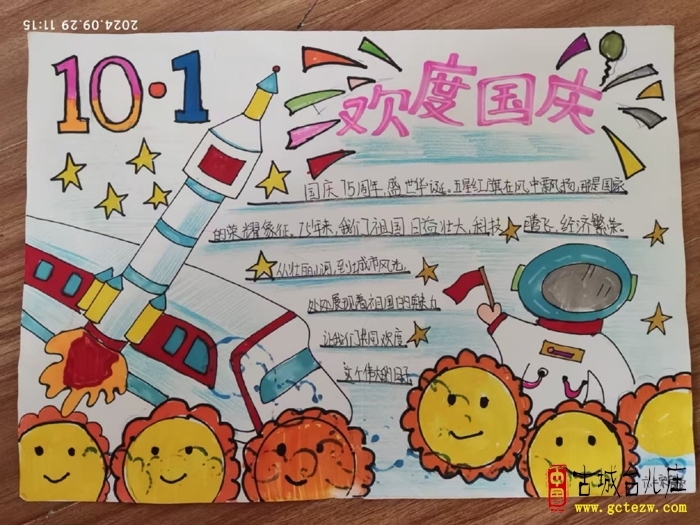 2024.09.29 11:15
10·1
欢度国庆
国庆75周年,盛世华诞。五星红旗在风中飘扬,那是国家
的荣耀象征。75年来,我们祖国日益壮大,科技腾飞,经济繁荣。
从壮丽山河,到城市风光,
处处展现着祖国的魅力
让我们共同欢度
这个伟大的日子
古城台北座
www.gctezw.com